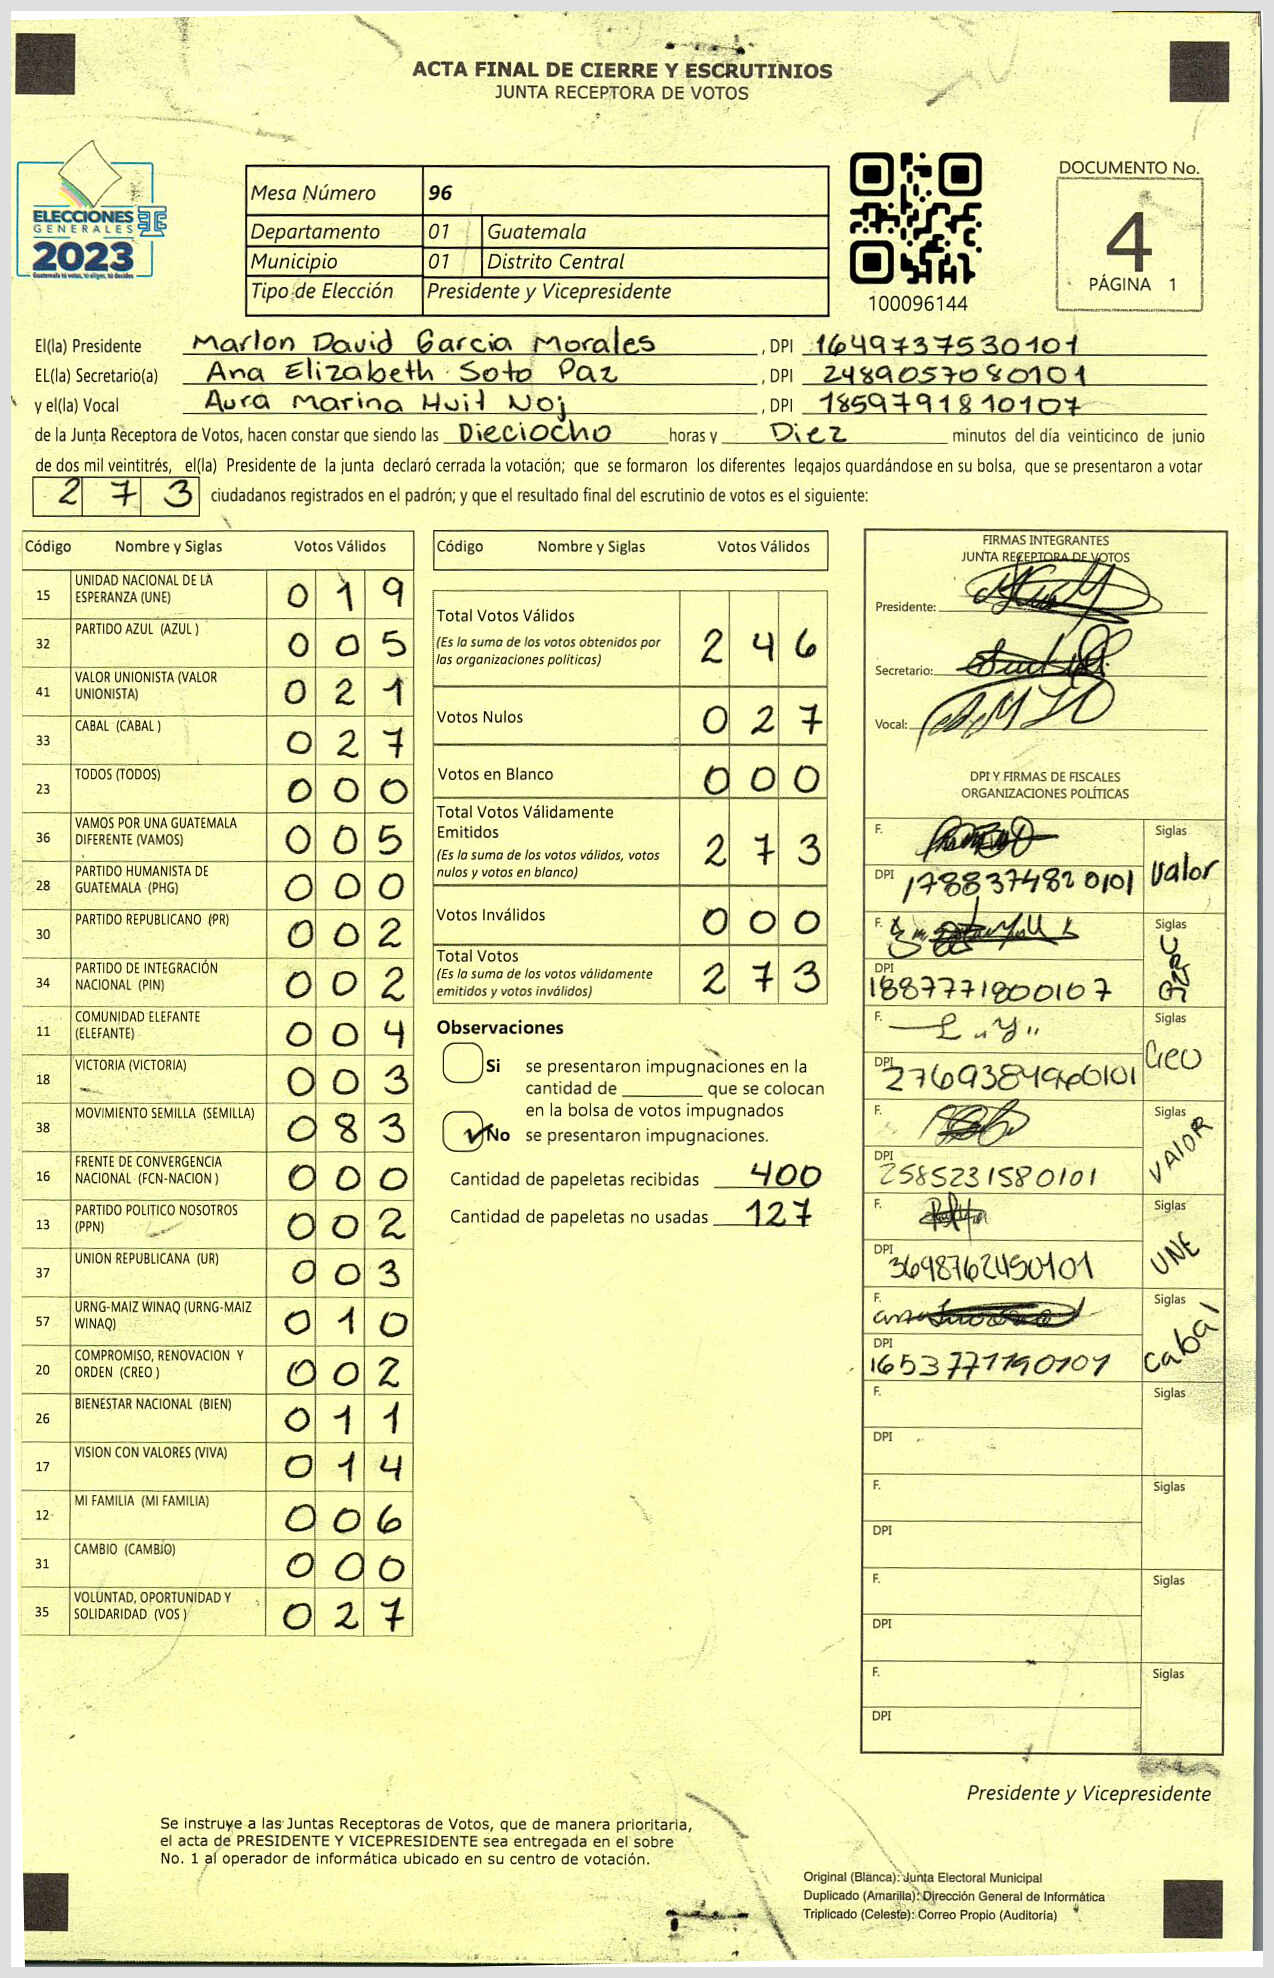 ACTA FINAL DE CIERRE Y ESCRUTINIOS
JUNTA RECEPTORA DE VOTOS
ELECCIONES
GENERALES
2023
Guatemala tú votas, tú eliges, tú decides
Mesa Número 96
Departamento 01 Guatemala
Municipio 01 Distrito Central
Tipo de Elección Presidente y Vicepresidente
100096144
DOCUMENTO No.
4
PÁGINA 1
El(la) Presidente Marlon David Garcia Morales , DPI 1649737530101
EL(la) Secretario(a) Ana Elizabeth Soto Paz , DPI 2489057080101
y el(la) Vocal Aura Marina Huit Noj , DPI 1859791810107
de la Junta Receptora de Votos, hacen constar que siendo las Dieciocho horas y Diez minutos del día veinticinco de junio
de dos mil veintitrés, el(la) Presidente de la junta declaró cerrada la votación; que se formaron los diferentes legajos guardándose en su bolsa, que se presentaron a votar
2 7 3 ciudadanos registrados en el padrón; y que el resultado final del escrutinio de votos es el siguiente:
Código Nombre y Siglas Votos Válidos
15 UNIDAD NACIONAL DE LA ESPERANZA (UNE) 0 1 9
32 PARTIDO AZUL (AZUL ) 0 0 5
41 VALOR UNIONISTA (VALOR UNIONISTA) 0 2 1
33 CABAL (CABAL ) 0 2 7
23 TODOS (TODOS) 0 0 0
36 VAMOS POR UNA GUATEMALA DIFERENTE (VAMOS) 0 0 5
28 PARTIDO HUMANISTA DE GUATEMALA (PHG) 0 0 0
30 PARTIDO REPUBLICANO (PR) 0 0 2
34 PARTIDO DE INTEGRACIÓN NACIONAL (PIN) 0 0 2
11 COMUNIDAD ELEFANTE (ELEFANTE) 0 0 4
18 VICTORIA (VICTORIA) 0 0 3
38 MOVIMIENTO SEMILLA (SEMILLA) 0 8 3
16 FRENTE DE CONVERGENCIA NACIONAL (FCN-NACION ) 0 0 0
13 PARTIDO POLITICO NOSOTROS (PPN) 0 0 2
37 UNION REPUBLICANA (UR) 0 0 3
57 URNG-MAIZ WINAQ (URNG-MAIZ WINAQ) 0 1 0
20 COMPROMISO, RENOVACION Y ORDEN (CREO ) 0 0 2
26 BIENESTAR NACIONAL (BIEN) 0 1 1
17 VISION CON VALORES (VIVA) 0 1 4
12 MI FAMILIA (MI FAMILIA) 0 0 6
31 CAMBIO (CAMBIO) 0 0 0
35 VOLUNTAD, OPORTUNIDAD Y SOLIDARIDAD (VOS ) 0 2 7
Código Nombre y Siglas Votos Válidos
Total Votos Válidos 2 4 6
(Es la suma de los votos obtenidos por
las organizaciones políticas)
Votos Nulos 0 2 7
Votos en Blanco 0 0 0
Total Votos Válidamente
Emitidos 2 7 3
(Es la suma de los votos válidos, votos
nulos y votos en blanco)
Votos Inválidos 0 0 0
Total Votos 2 7 3
(Es la suma de los votos válidamente
emitidos y votos inválidos)
Observaciones
Si se presentaron impugnaciones en la
cantidad de ________ que se colocan
en la bolsa de votos impugnados
No se presentaron impugnaciones.
Cantidad de papeletas recibidas 400
Cantidad de papeletas no usadas 127
FIRMAS INTEGRANTES
JUNTA RECEPTORA DE VOTOS
Presidente:
Secretario:
Vocal:
DPI Y FIRMAS DE FISCALES
ORGANIZACIONES POLÍTICAS
F. Siglas
DPI 1788374820101 Valor
F. Siglas
DPI 1887771800107
F. Siglas
DPI Creo
F. Siglas
DPI 2585231580101 VALOR
F. Siglas
DPI 3698762450101 UNE
F. Siglas
DPI 1653771190101 cabal
F. Siglas
DPI
F. Siglas
DPI
F. Siglas
DPI
F. Siglas
DPI
Presidente y Vicepresidente
Se instruye a las Juntas Receptoras de Votos, que de manera prioritaria,
el acta de PRESIDENTE Y VICEPRESIDENTE sea entregada en el sobre
No. 1 al operador de informática ubicado en su centro de votación.
Original (Blanca): Junta Electoral Municipal
Duplicado (Amarilla): Dirección General de Informática
Triplicado (Celeste): Correo Propio (Auditoría)